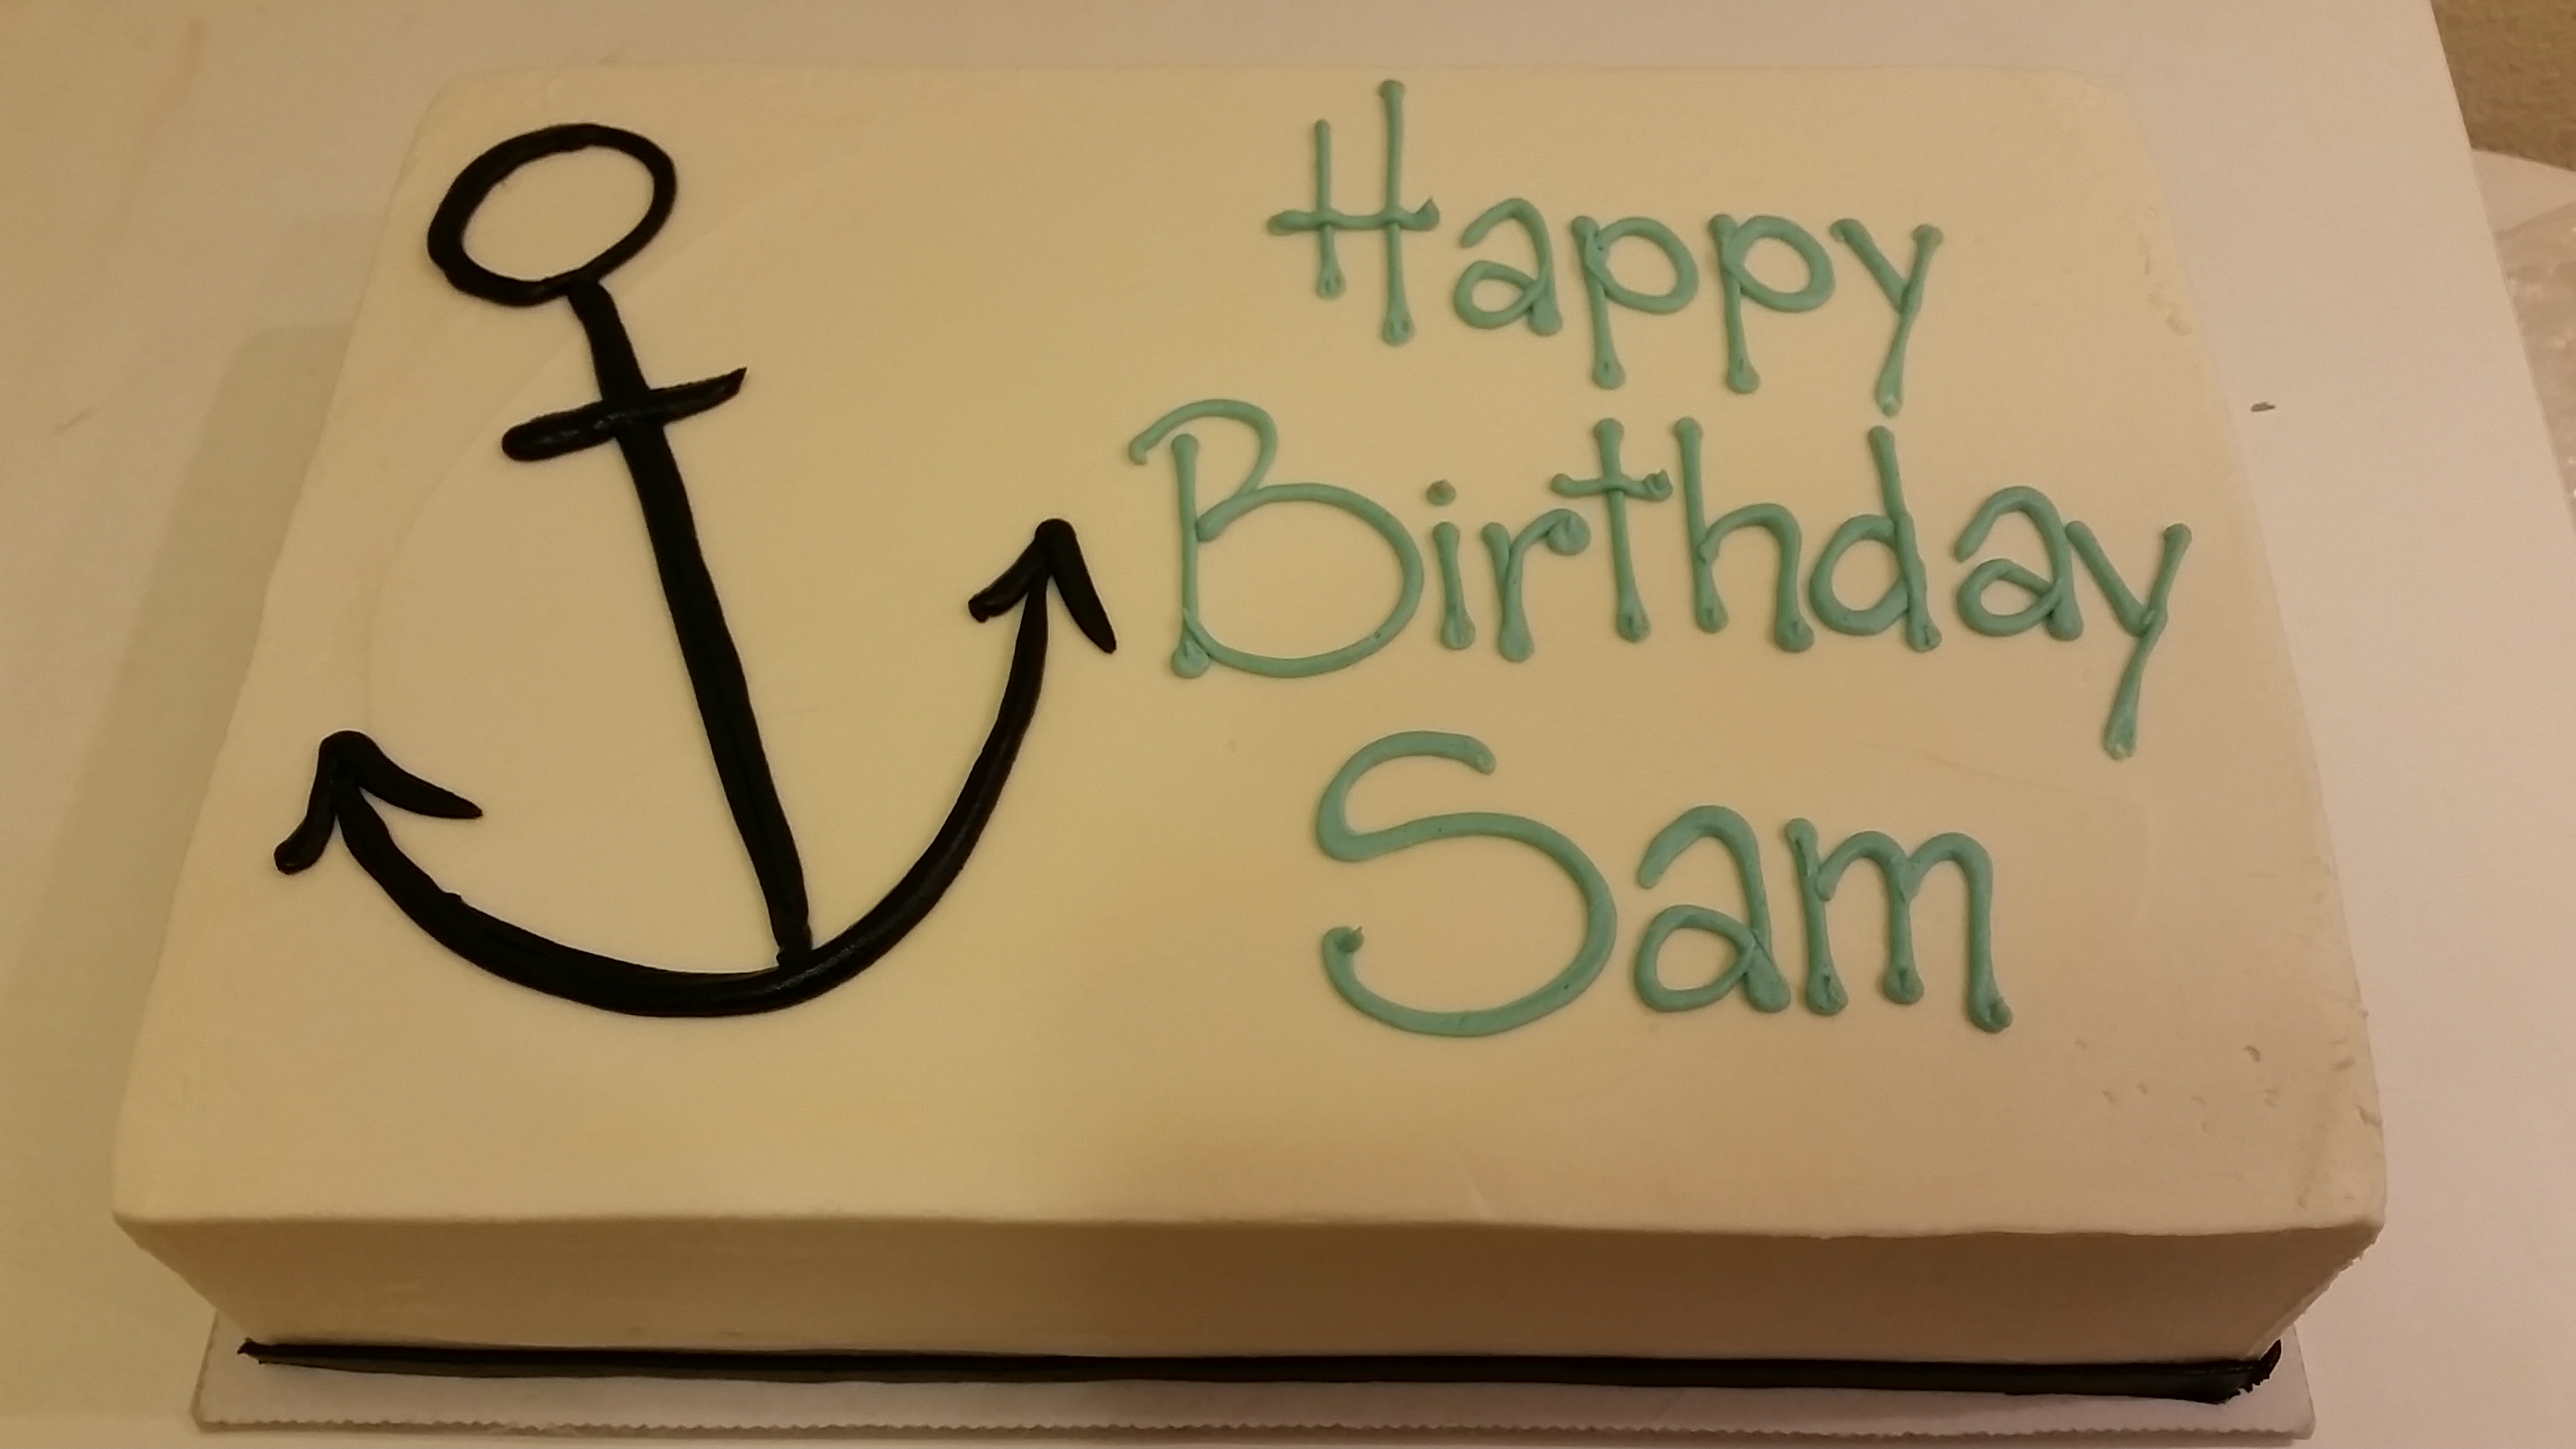 Happy
Birthday
Sam